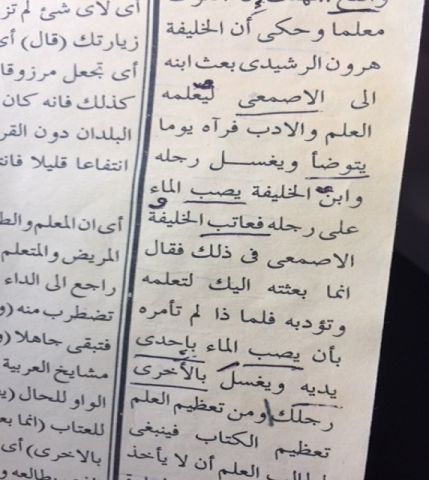 معلما وحكى أن الخليفة
هرون الرشيدى بعث ابنه
الى الاصمعى ليعلمه
العلم والادب فرآه يوما
يتوضأ ويغسل رجله
وابن الخليفة يصب الماء
على رجله فعاتب الخليفة
الاصمعى فى ذلك فقال
انما بعثته اليك لتعلمه
وتؤدبه فلما ذا لم تأمره
بأن يصب الماء بإحدى
يديه ويغسل بالأخرى
رجلك ومن تعظيم العلم
تعظيم الكتاب فينبغى
العلم أن لا يأخذ
أى لاى شئ لم
زيارتك (قال)
أى تجعل مرزوقا
كذلك فانه كان
البلدان دون
انتفاعا قليلا
أى ان المعلم
المريض والمتعلم
راجع الى الداء
تضطرب منه
فتبقى جاهلا
مشايخ العربية
الواو للحال
للعتاب (انما
بالاخرى) أى